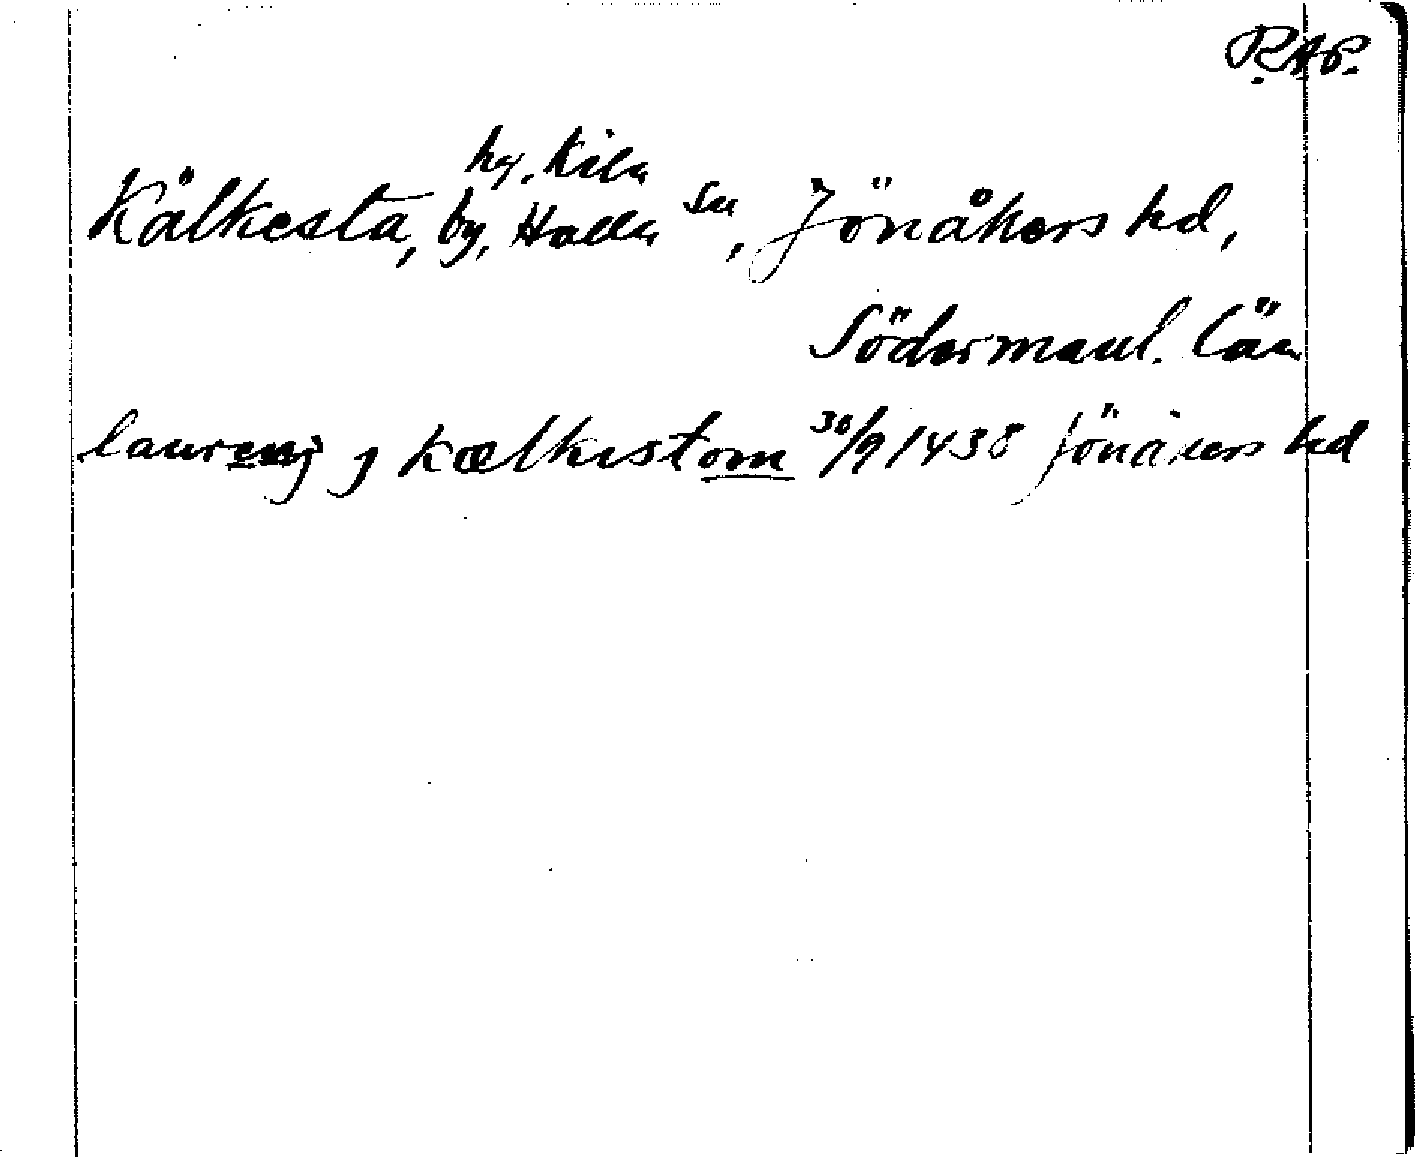 R.A.P.
by, Kila
Kålkesta, by, Halla sn, Jönåkers hd,
Södermanl. län
laurenj j kælkestom 30/9 1438 Jönåkers hd